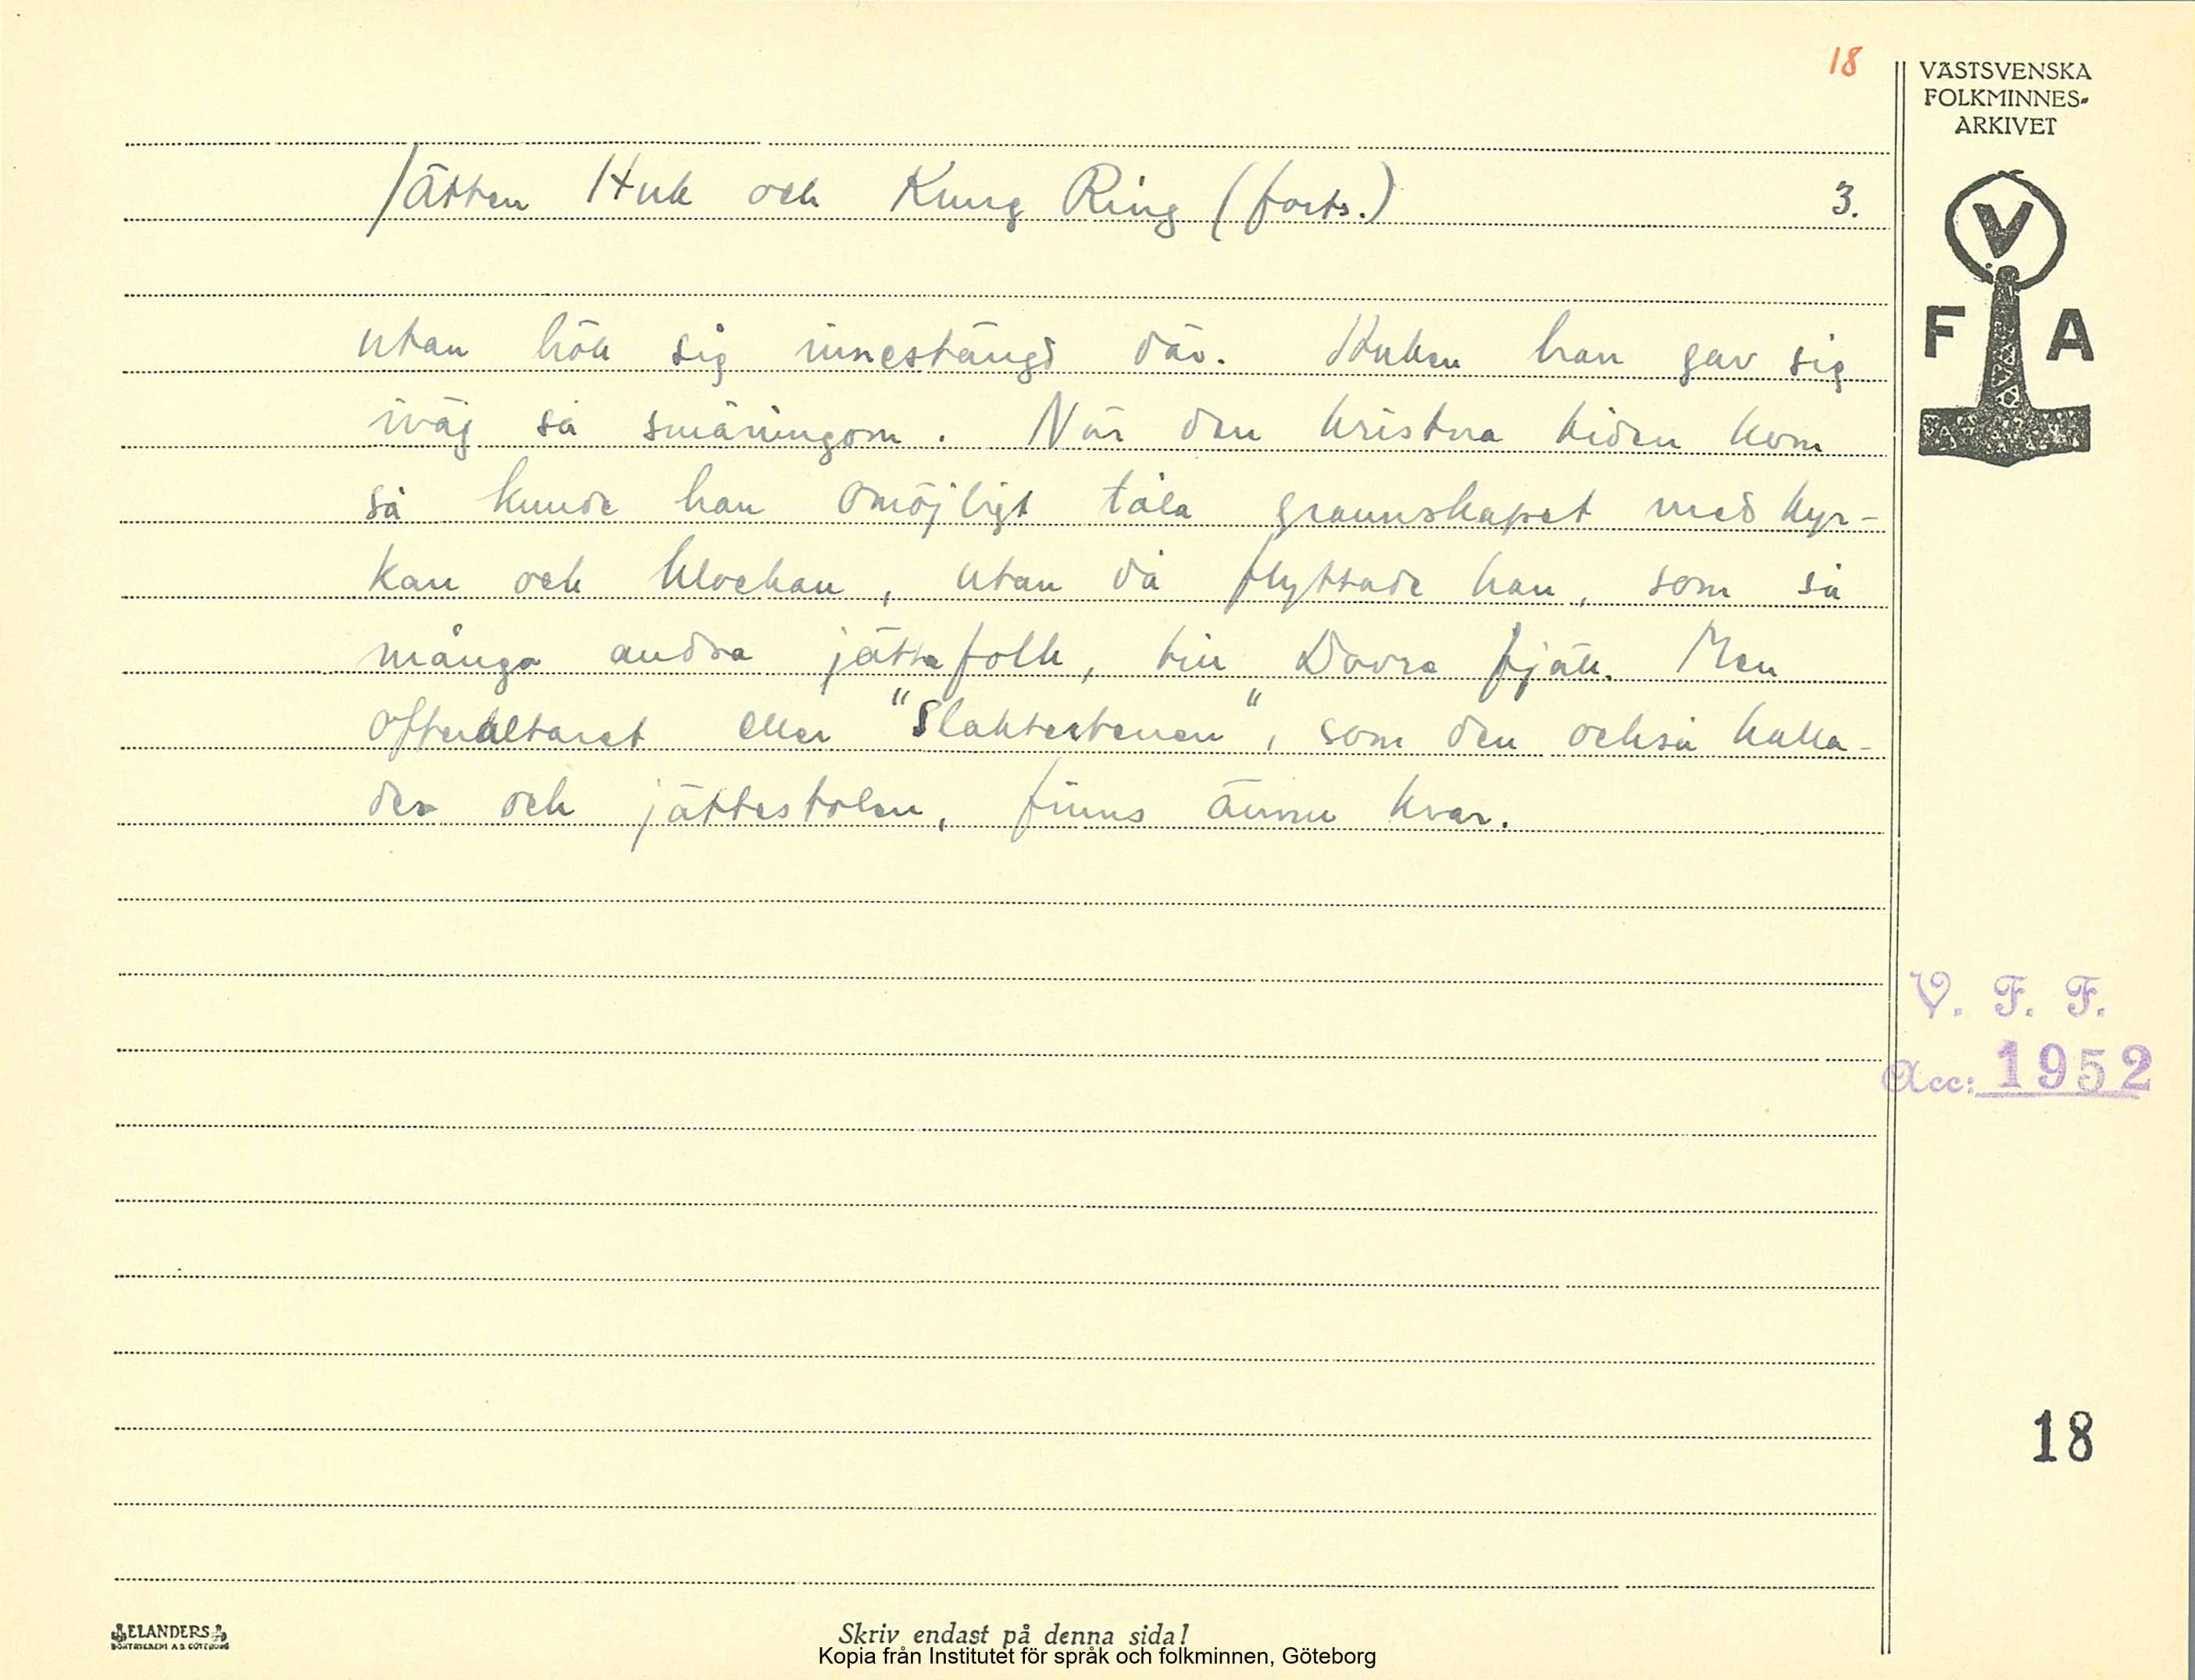 18
VÄSTSVENSKA
FOLKMINNES-
ARKIVET
Jätten Huk och Kung Ring (forts.) 3.
V
F A
utan höll sig innestängd där. Huken han gav sig
iväg så småningom. När den kristna tiden kom
så kunde han omöjligt tåla grannskapet med kyr-
kan och klockan, utan då flyttade han, som så
många andra jättefolk, till Dovre fjäll. Men
offeraltaret eller "Slaktestenen", som den också kalla-
des och jättestolen, finns ännu kvar.
V. F. F.
Acc: 1952
18
ELANDERS
BOKTRYCKERI A.B. GÖTEBORG
Skriv endast på denna sida!
Kopia från Institutet för språk och folkminnen, Göteborg